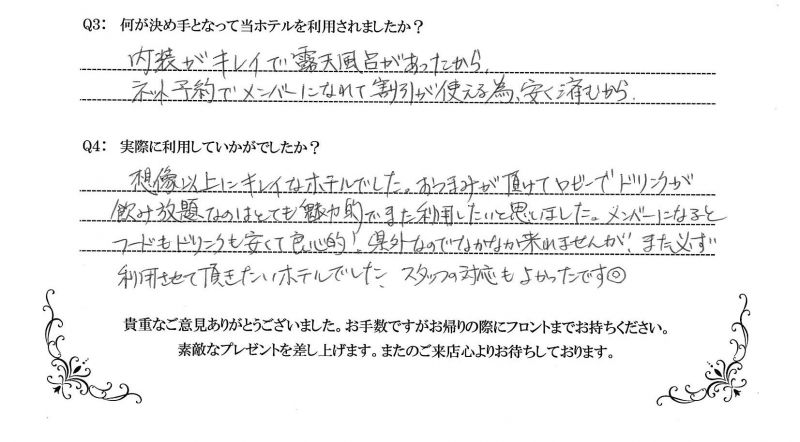 Q3: 何が決め手となって当ホテルを利用されましたか？
内装がキレイで露天風呂があったから。
ネット予約でメンバーになれて割引が使える為、安く済むから。
Q4: 実際に利用していかがでしたか？
想像以上にキレイなホテルでした。おつまみが頂けてロビーでドリンクが
飲み放題なのはとても魅力的でまた利用したいと思いました。メンバーになると
フードもドリンクも安くて良心的！県外なのでなかなか来れませんが、また必ず
利用させて頂きたいホテルでした。スタッフの対応もよかったです◎
貴重なご意見ありがとうございました。お手数ですがお帰りの際にフロントまでお持ちください。
素敵なプレゼントを差し上げます。またのご来店心よりお待ちしております。